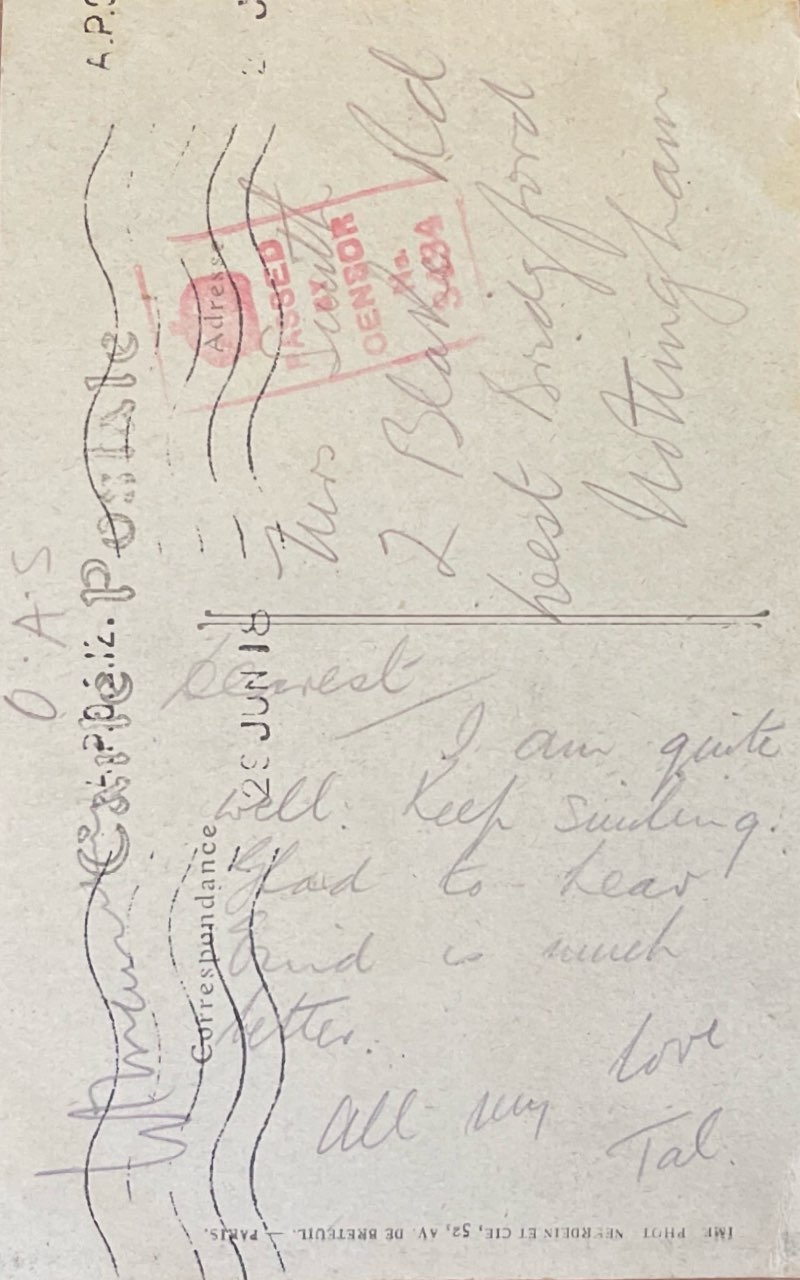 O.A.S
Carte Postale
A.P.O.
29 JUN 18
Correspondance
Dearest
I am quite
well. Keep smiling.
Glad to hear
is much
better.
All my love
Tal.
Adresse
PASSED
BY
CENSOR
No.
Mrs Smith
2 Blake Rd
West Bridgford
Nottingham
IMP. PHOT. NEURDEIN ET CIE, 52, AV. DE BRETEUIL. — PARIS.